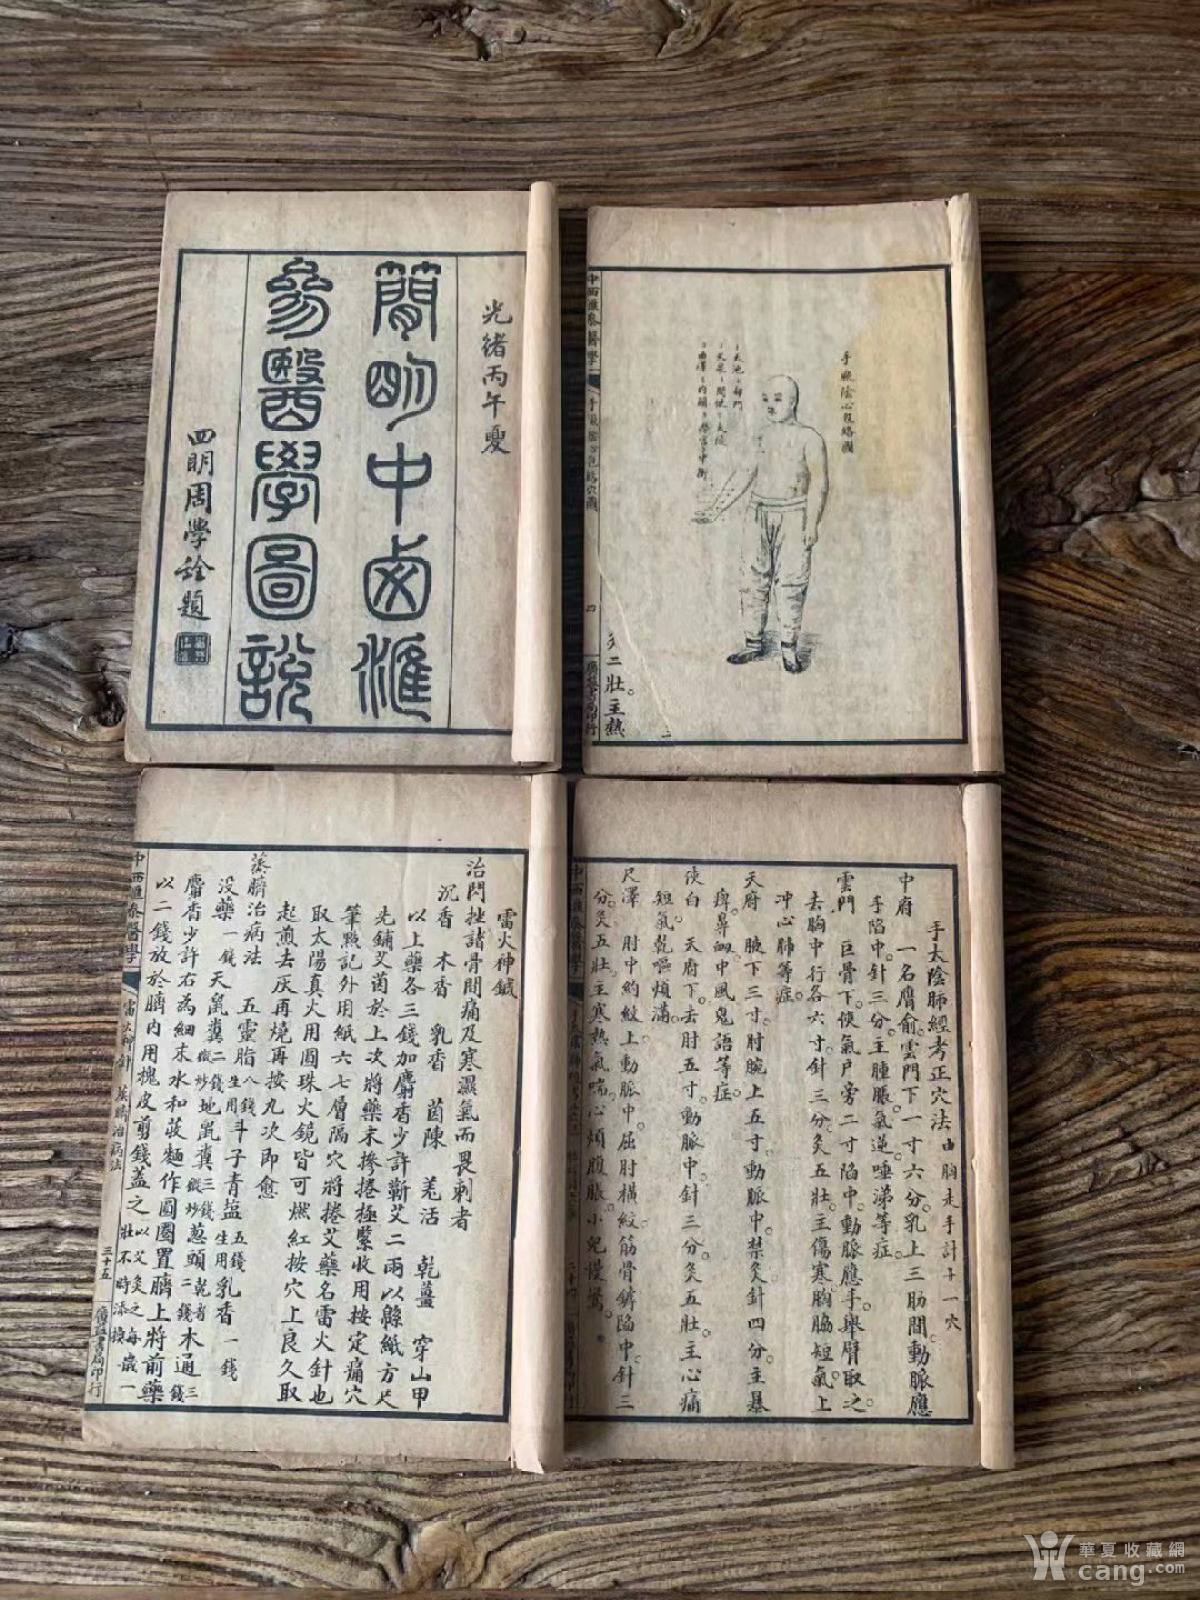 光緒丙午夏
簡明中西滙
參醫學圖說
四明周學銓題
手厥陰心包絡圖
中西匯參醫學
四
廣益書局印行
灸二壯主熱
雷火神鍼
治閃挫諸骨間痛及寒濕氣而畏刺者
沉香 木香 乳香 茵陳 羌活 乾薑 穿山甲
以上藥各三錢加麝香少許蘄艾二兩以緜紙方尺
先鋪艾茵於上次將藥末摻捲極緊收用按定痛穴
筆㸃記外用紙六七層隔穴將捲艾藥名雷火針也
取太陽真火用圓珠火鏡皆可燃紅按穴上良久取
起煎去灰再燒再按九次即愈
蒸臍治病法 五靈脂八錢生用斗子青塩五錢生用乳香一錢
没藥一錢天鼠糞二錢微炒地鼠糞三錢微炒葱頭乾者二錢木通三錢
麝香少許右為細末水和莜麵作圓圈置臍上將前藥
以二錢放於臍内用槐皮剪錢蓋之以艾灸之每歲一壯不時添換
中西匯參醫學
雷火神針 蒸臍治病法
三十五
廣益書局印行
手太陰肺經考正穴法由胸走手計十一穴
中府 一名膺俞雲門下一寸六分。乳上三肋間。動脈應
手陷中。針三分。主腫脹氣逆。唾涕等症。
雲門 巨骨下。俠氣户旁二寸陷中。動脈應手。舉臂取之。
去胸中行各六寸針三分。灸五壯。主傷寒。胸脇短氣。上
冲心肺等症。
天府 腋下三寸。肘腕上五寸。動脈中。禁灸針四分主暴
痺。鼻衄。中風鬼語等症。
俠白 天府下。去肘五寸。動脈中。針三分。灸五壯。主心痛
短氣。乾嘔煩滿。
尺澤 肘中約紋上動脈中屈肘横紋筋骨罅陷中。針三
分。灸五壯。主寒熱氣喘。心煩腹脹。小兒慢驚。
中西匯參醫學
華夏收藏網
cang.com